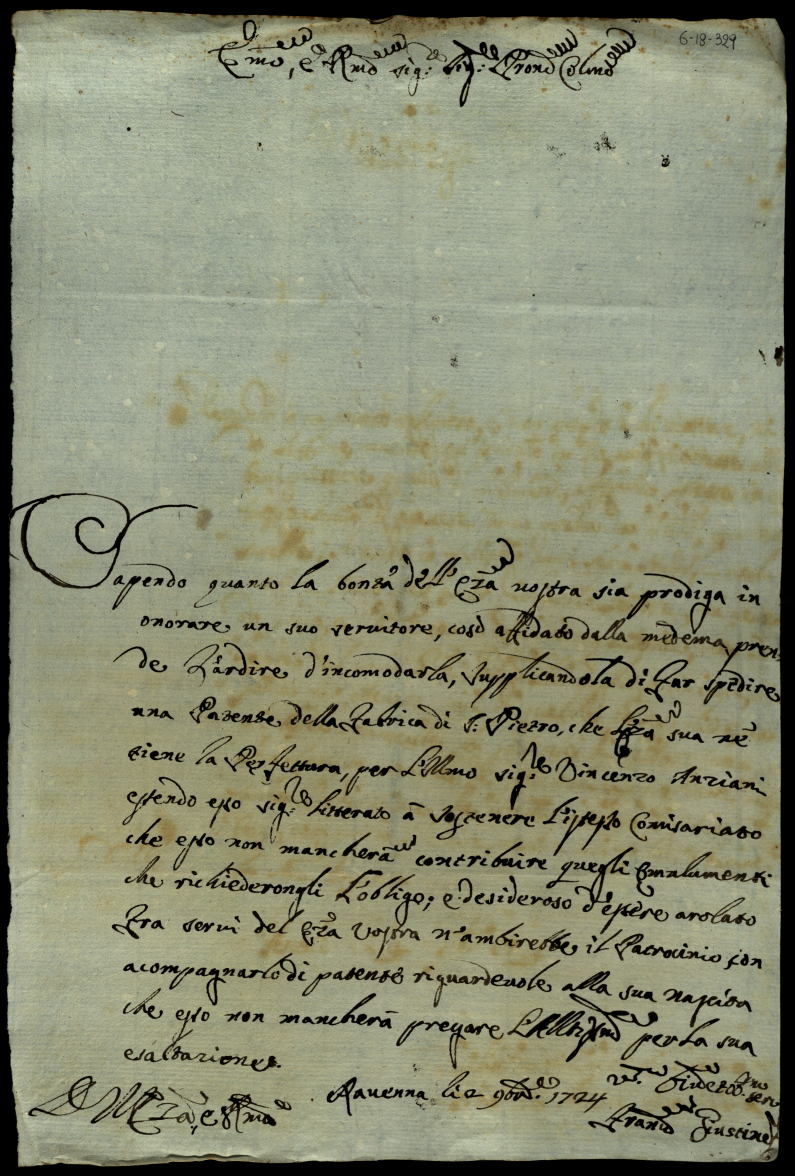 6-18-329
Emo, e Rmo sig: sig: Prone Colmo
Sapendo quanto la bontà dell' Eza vostra sia prodiga in
onorare un suo servitore, così affidato dalla medema pren
de l'ardire d'incomodarla, supplicandola di far spedire
una Patente della Fabrica di S. Pietro, che l'Eza sua ne
tiene la Perfettura, per L'Illmo sig:re Vincenzo Anziani
essendo esso sig:re litterato à sostenere l'istesso Comisariato
che esso non mancherà contribuire quegli Emulumenti
che richiederongli l'obligo; e desideroso d'essere arolato
fra servi del Eza Vostra n'ambirebbe il Patrocinio con
acompagnarlo di patente riguardevole alla sua nascita
che esso non mancherà pregare L'Altissmo per la sua
esaltazione.
Ravenna li 2 9bre 1724
D V Eza, e Rma
Franco Giustine